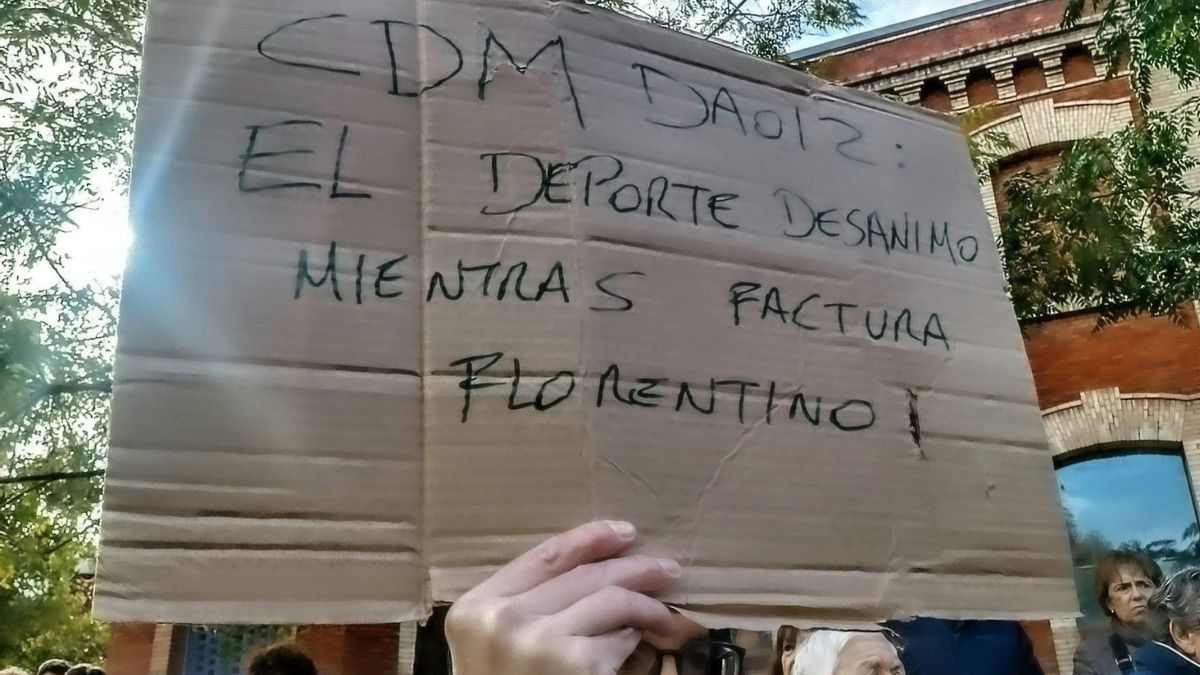 CDM DAOIZ:
EL DEPORTE DESANIMO
MIENTRAS FACTURA
FLORENTINO!